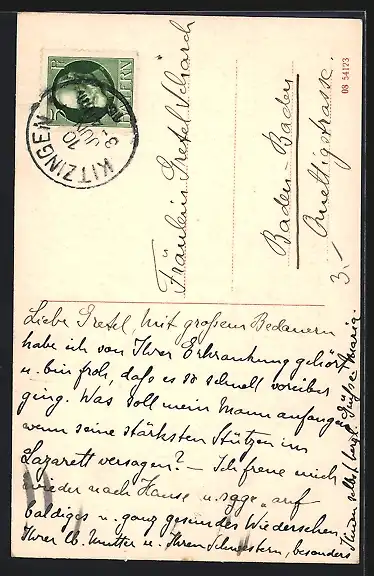 BAYERN
KITZINGEN
3 JUN
10
08 54123
Fräulein Gretel Scharch
Baden-Baden
strasse
3.
Liebe Gretel, mit großem Bedauern
habe ich von Ihrer Erkrankung gehört
u. bin froh, dass es so schnell vorüber
ging. Was soll mein Mann anfangen
wenn seine stärksten Stützen im
Lazarett versagen? – Ich freue mich
wieder nach Hause u. sage „auf
baldiges u. ganz gesundes Wiedersehen
Ihrer lb. Mutter u. Ihren Schwestern, besonders
Ihnen selbst herzl. Grüße Maria.